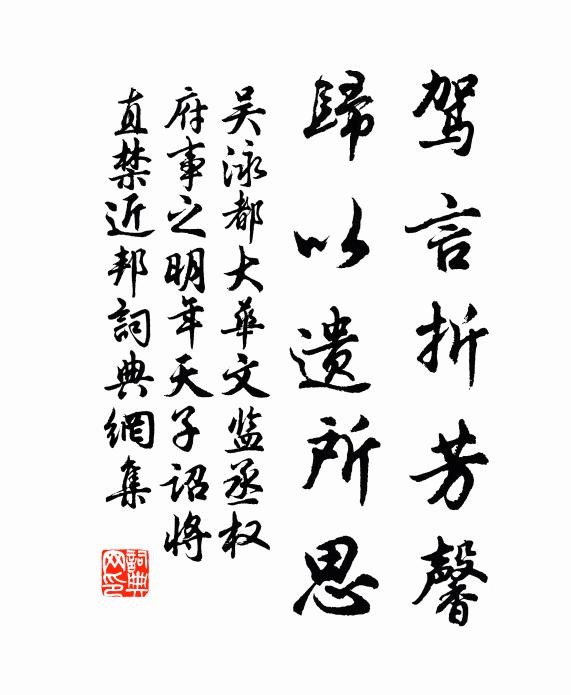 驾言折芳馨
歸以遗所思
吴泳都大華文监丞权
府事之明年天子诏將
直禁近邦詞典網集
詞典网印